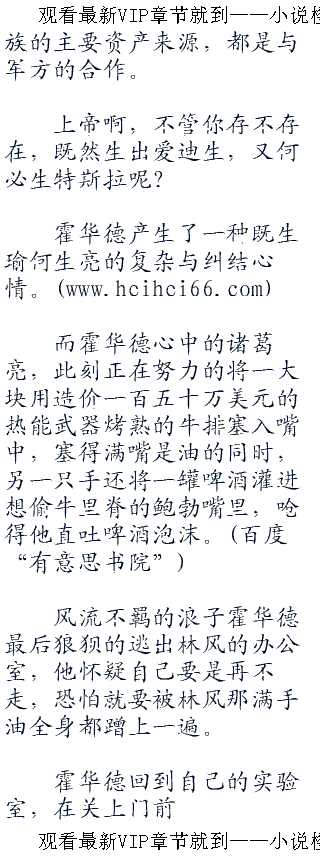 观看最新VIP章节就到——小说楼
族的主要资产来源，都是与
军方的合作。
上帝啊，不管你存不存
在，既然生出爱迪生，又何
必生特斯拉呢？
霍华德产生了一种既生
瑜何生亮的复杂与纠结心
情。(www.hcihci66.com)
而霍华德心中的诸葛
亮，此刻正在努力的将一大
块用造价一百五十万美元的
热能武器烤熟的牛排塞入嘴
中，塞得满嘴是油的同时，
另一只手还将一罐啤酒灌进
想偷牛里脊的鲍勃嘴里，呛
得他直吐啤酒泡沫。(百度
“有意思书院”)
风流不羁的浪子霍华德
最后狼狈的逃出林风的办公
室，他怀疑自己要是再不
走，恐怕就要被林风那满手
油全身都蹭上一遍。
霍华德回到自己的实验
室，在关上门前
观看最新VIP章节就到——小说楼